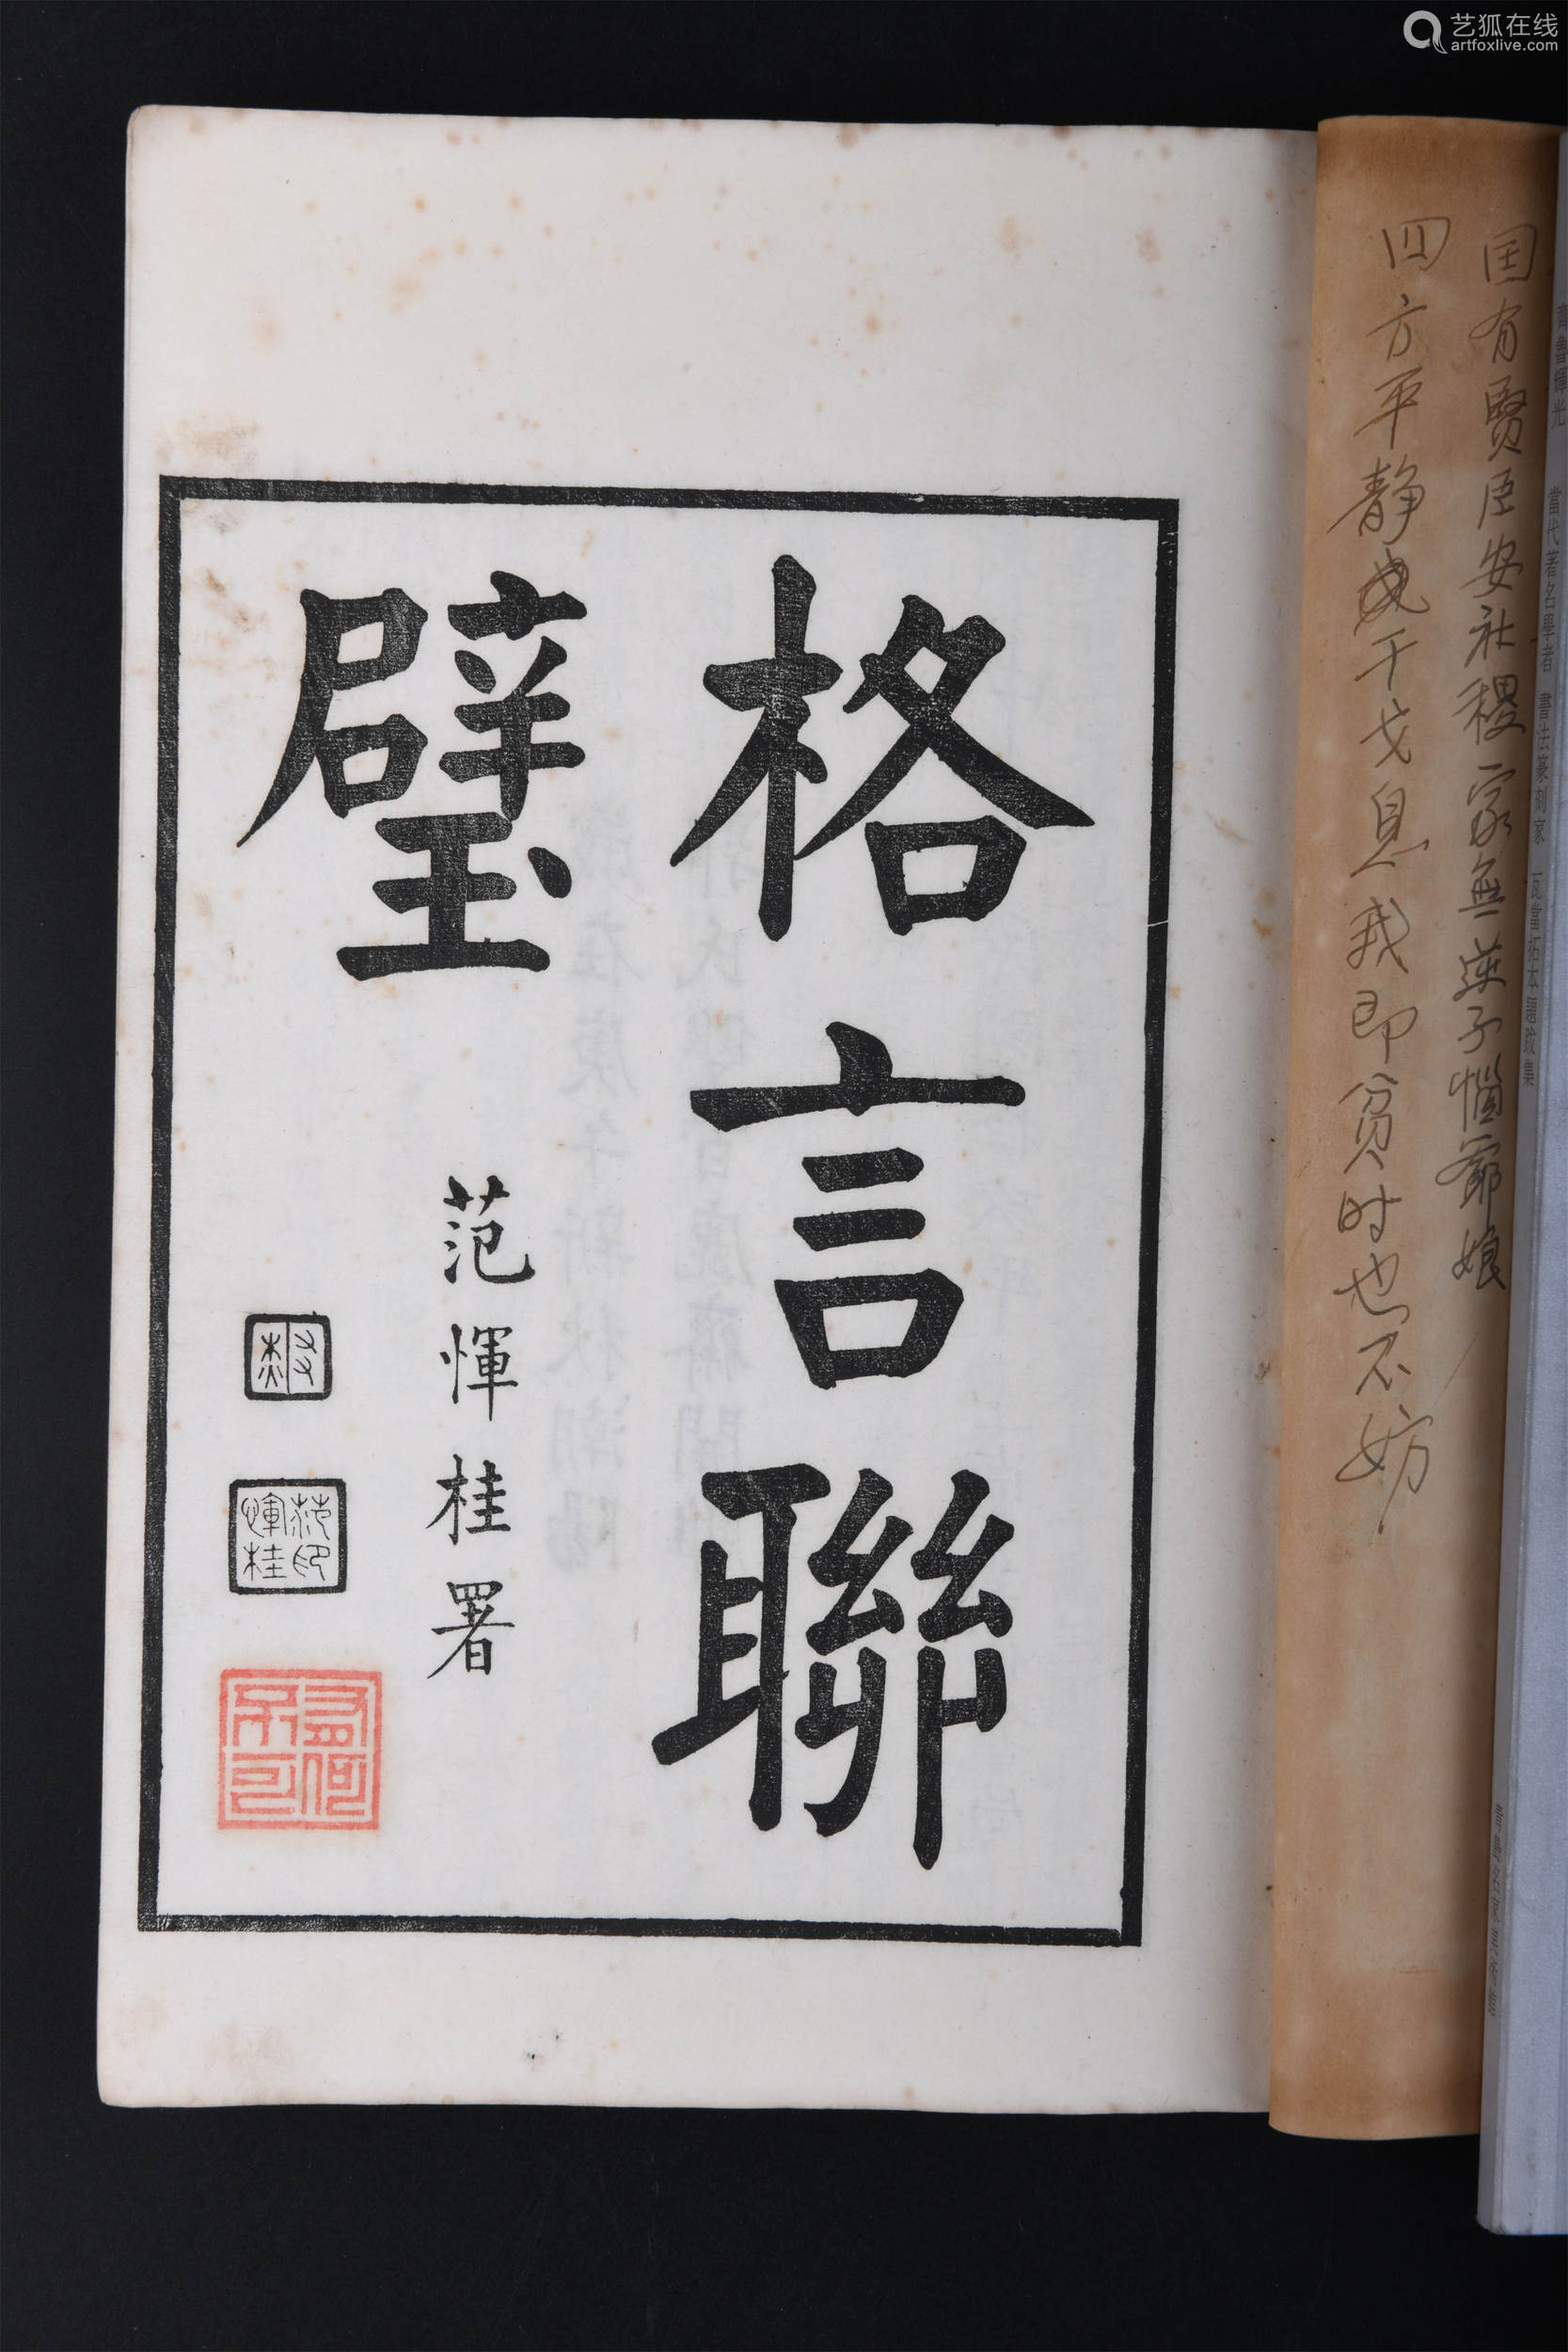 艺狐在线
artfoxlive.com
格言聯
璧
范惲桂署
范印
惲桂
国有賢臣安社稷家無逆子惱爺娘
四方平静干戈息我即贫时也不妨
當代著名學者 書法篆刻家 瓦當拓本題跋集